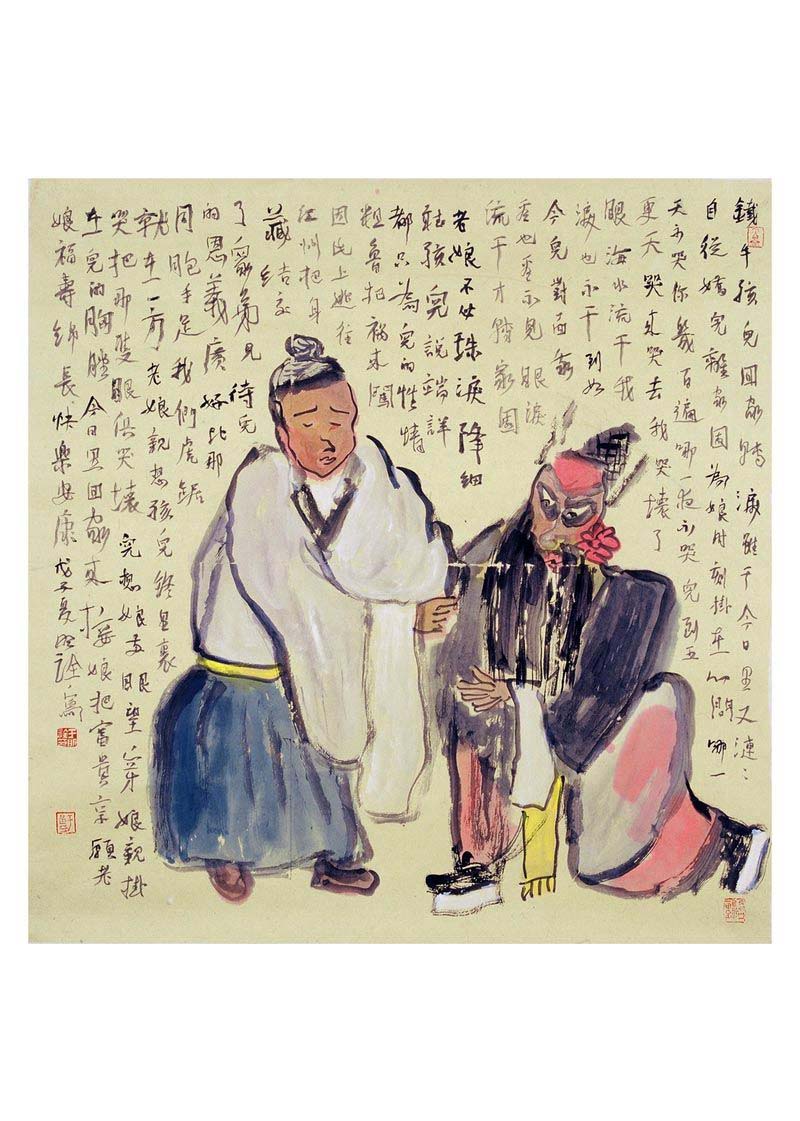 鐵牛孩兒回家鄉淚雖干今日里又漣
自從嬌兒離家園為娘時刻掛在心間哪一
天不哭你幾百遍哪一夜不哭兒到五
更天哭來哭去我哭壞了
眼海水流干我
淚也不干到如
今兒對面
看也看不見眼淚
流干才歸家園
老娘不必珠淚降細
聽孩兒說端詳
都只為兒的性情
粗魯把禍來闖
因此上逃往
江州把身
藏結交
了家弟兄待兒
的恩義廣好比那
同胞手足我們虎踞
就在一方老娘親想孩兒終日裏
哭把那雙眼俱哭壞兒想娘眼望穿娘親掛
在兒的胸膛今日里回家來接娘把富貴享願老
娘福壽綿長快樂安康戊子夏詮寫